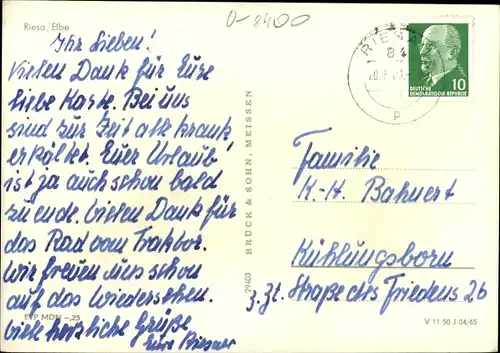 Riesa/Elbe
D-8400
Ihr Lieben!
Vielen Dank für Eure
liebe Karte. Bei uns
sind zur Zeit alle krank
erkältet. Euer Urlaub
ist ja auch schon bald
zu ende. Vielen Dank für
das Rad vom Traktor.
Wir freuen uns schon
auf das Wiedersehen.
Viele herzliche Grüße
Eure Riesaer
EVP MDN -,25
29403 BRÜCK & SOHN, MEISSEN
RIESA
84
p
10
DEUTSCHE
DEMOKRATISCHE REPUBLIK
Familie
K.-H. Bahnert
Kühlungsborn
z. Zt. Straße des Friedens 26
V 11 50 J 04/65